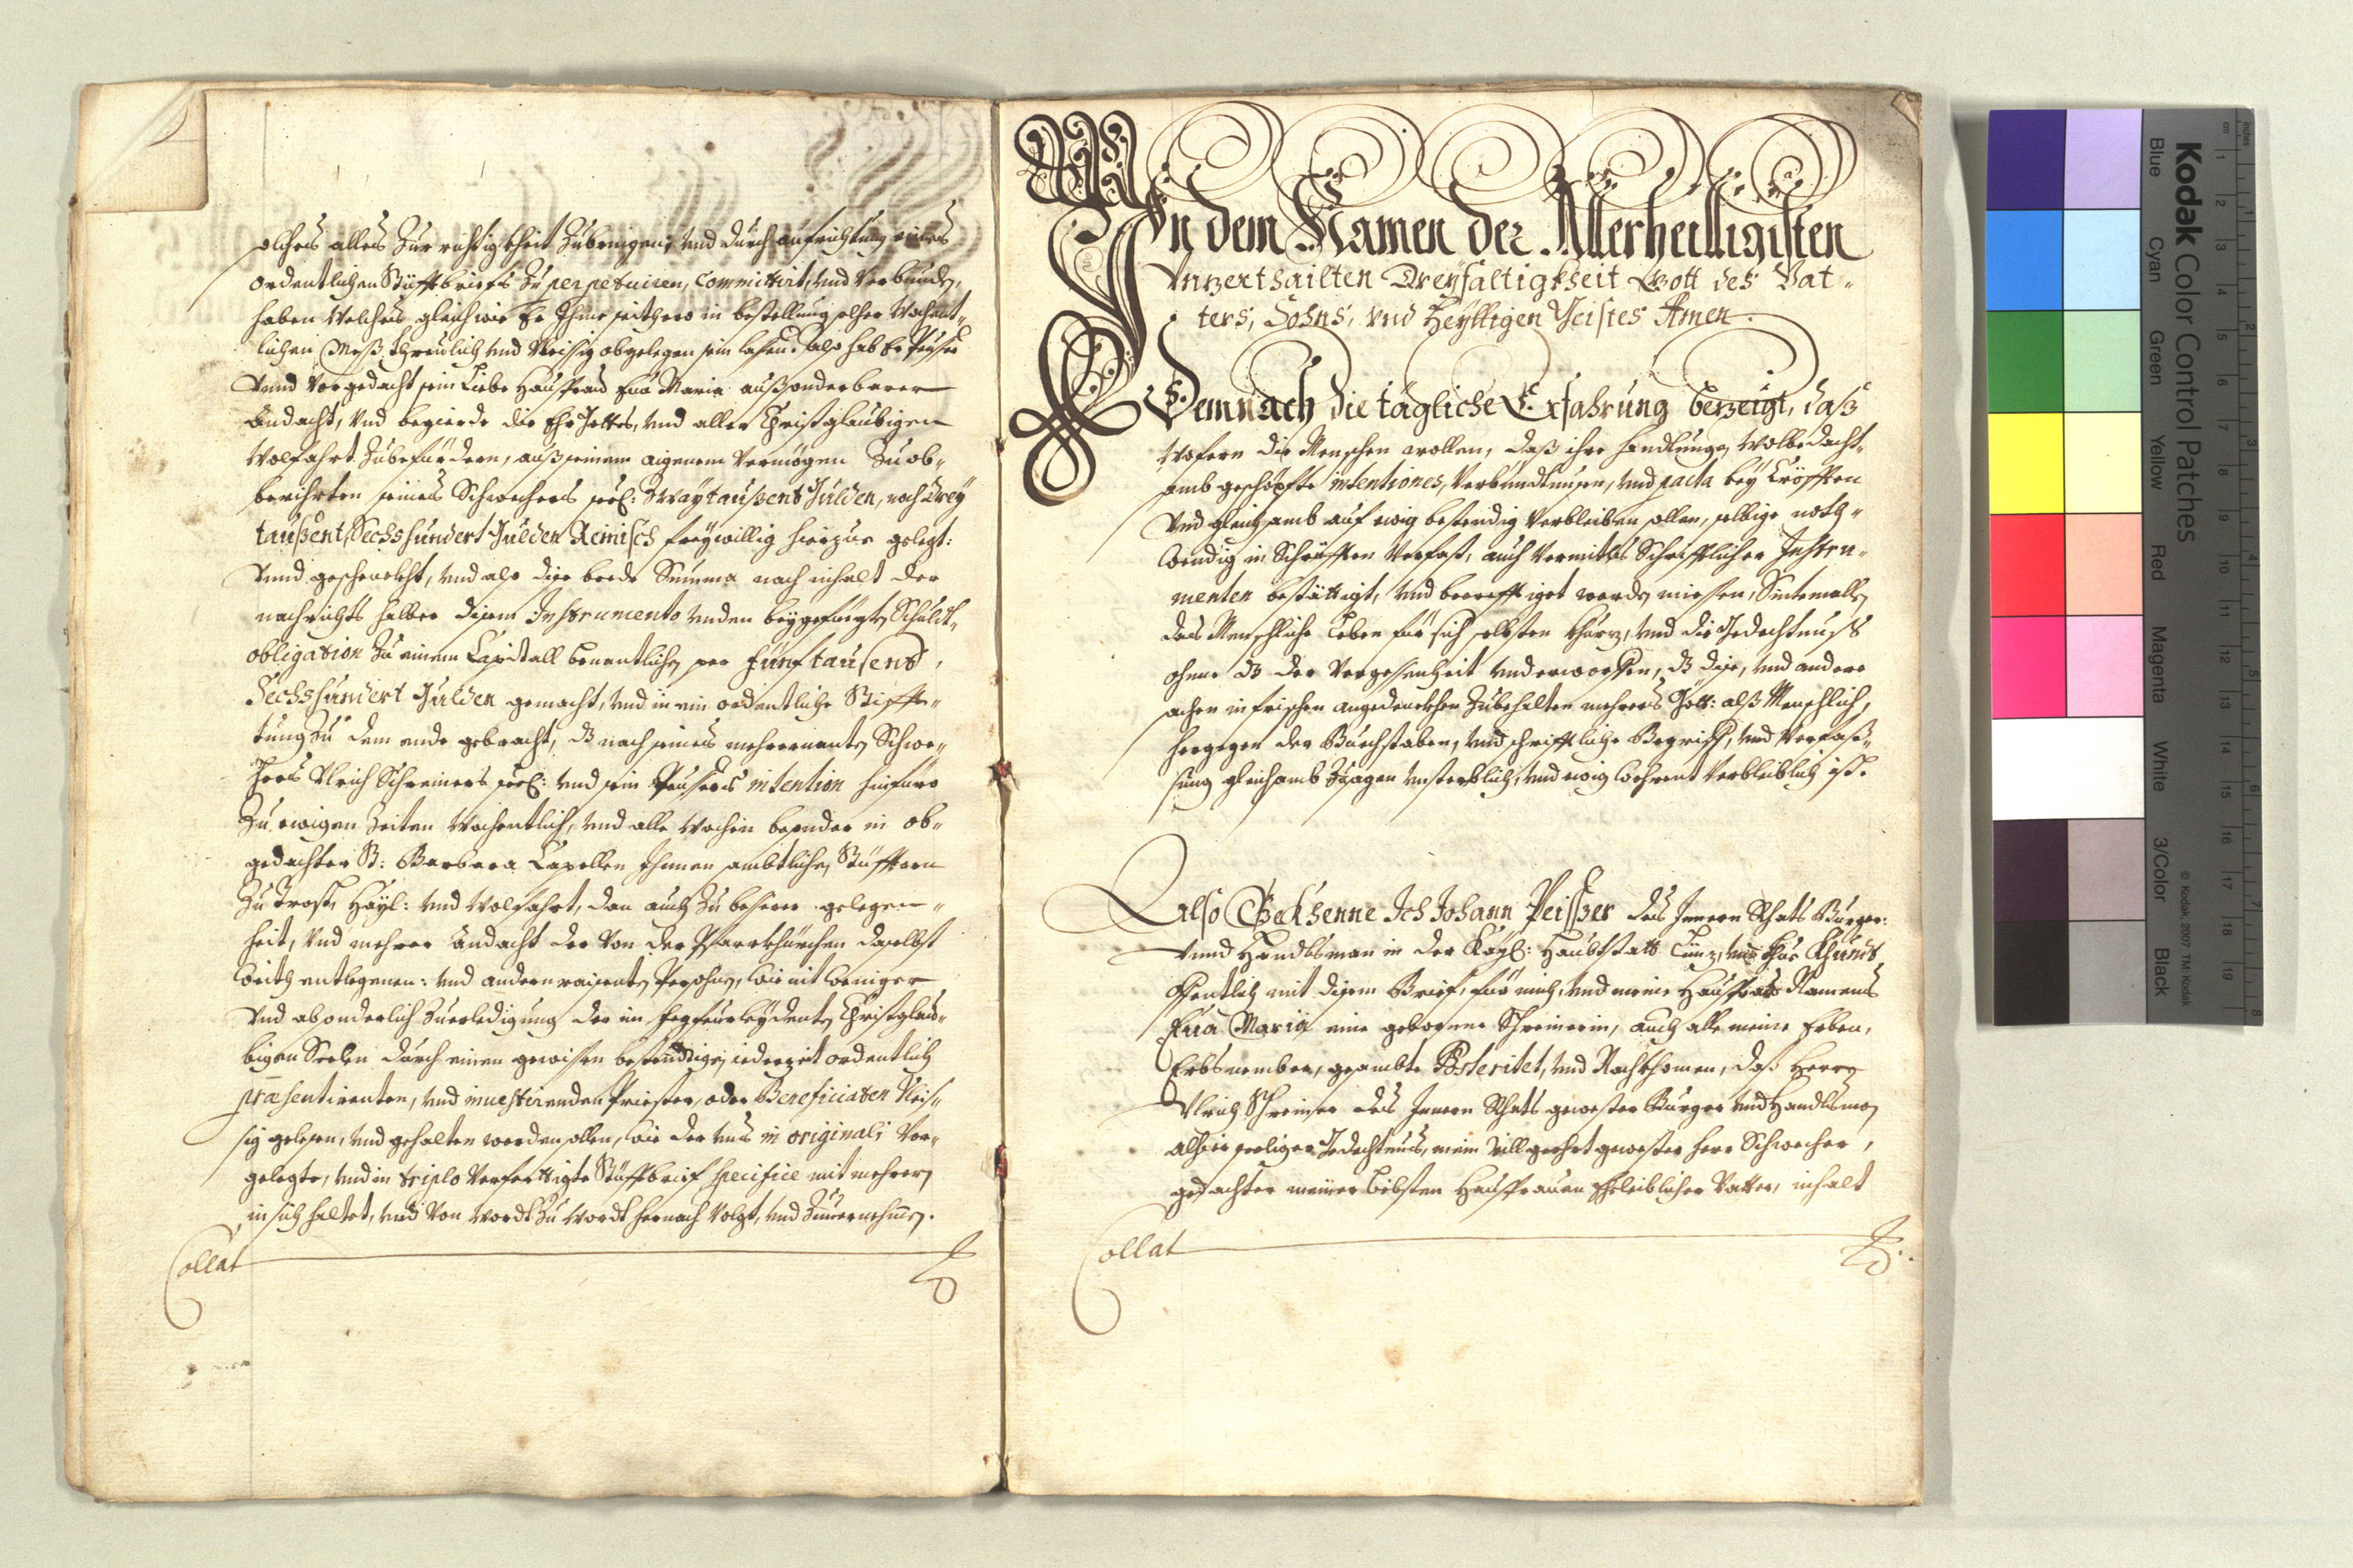 solches alles Zur richtigkheit Zubringen, und durch aufrichtung eines
ordentlichen Stüfftbriefs Zu perpetuiren, Committirt, und Verbunden,
haben Welches gleichwie Er Ihme seithero in bestellung solher Wochent„
lichen Meß threulich und fleissig obgelegen sein lassen. also hab Er Peisser
Vnnd Vorgedacht sein Liebe Haußfrau Eua Maria auß sonderbarer
Andacht, Vnd begierde die Ehr Gottes, und aller Christglaubigen
Wolfahrt Zubefürdern, auß seinem aigenem Vermögen Zu ob„
berihrten seines Schwechers seel: Zwaytaußent Gulden, noch Drey
taußent, Sechshundert Gulden Reinisch freywillig hierzue gelegt:
Vnnd geschenckht, und also dise beede Summa nach inhalt der
nachrichts halber disem Instrumento unden beygefüegten Schuldt„
obligation Zu einem Capitall benentlichen per Fünftausent,
Sechshundert Gulden gemacht, und in ein ordentliche Stiff„
tung Zu dem ende gebracht, dz nach seines mehrernanten Schwe„
chers Vlrich Schreiners seel: und sein Peissers intention hinfüro
Zu ewigen Zeiten Wochentlich, und alle Wochen besonder in ob„
gedachter St: Barbara Capellen Ihnen sambtlichen Stüfftern
Zu Trost, Hayl: und Wolfahrt, dan auch Zu besserer gelegen„
heit, Vnd mehrer Andacht der Von der Pfarrkhürchen daselbst
weith entlegenen: und andern raisenten Persohnen, wie nit weniger
Vnd absonderlich Zuerledigung der im fegfeur leydenten Christglau„
bigen Seelen durch einen gewissen bestendigen iederzeit ordentlich
præsentirenten, und inuestirenden Priester, oder Beneficiaten fleis„
sig gelesen, und gehalten werden sollen, wie der uns in originali Vor„
gelegte, und in triplo Verfertigte Stüfftbrief specifice mit mehrern
in sich haltet, und Von Wordt Zu Wordt hernach Volgt, und Zuuernehmen.
Collat
In dem Namen der Allerheilligisten
Vnzerthailten Dreyfaltigkheit Gott des Vat„
ters, Sohns, und Heylligen Geistes Amen.
Demnach die tägliche Erfahrung bezeigt, daß
Wofern die Menschen wollen, daß ihre handlungen Wolbedacht„
samb geschöpfte intentiones, Verbündtnussen, und pacta bey Cröfften
Vnd gleichsamb auf ewig bestendig Verbleiben sollen, selbige noth„
wendig in Schrifften Verfast, auch Vermitls Schrifftlicher Instru„
menten bestättigt, und becrefftiget werden miessen, Sintemallen
das Menschliche Leben für sich selbsten khurz, und die Gedechtnuß
ohne dz der Vergessenheit underworffen, dz dise, und andere
sachen in frischen angedenckhen Zubehalten mehrers Gött: alß Menschlich,
hergegen der Buechstaben, und schrifftliche Begriff, und Verfas„
sung gleichsamb Zusagen unsterblich, und ewig wehrent Verbleiblich ist.
Also Bekhenne Ich Johann Peisser des Innern Rhats Burger:
Vnnd Handlsman in der Kayl: Haubtstatt Linz, und thue Khundt
Offentlich mit disem Brief, für mich, und meine Haußfrau Namens
Eua Maria eine gebohrne Schreinerin, auch alle meine Erben,
Erbsnemben, gesambte Posteritet, und Nachkhomen, daß Herr
Vlrich Schreiner des Innern Rhats gewester Burger und Handlsman
alhier seeliger Gedechtnus, mein Villgeehrt gewester Herr Schwecher,
gedachter meiner liebsten Haußfrauen Ehrleiblicher Vatter, inhalt
Collat